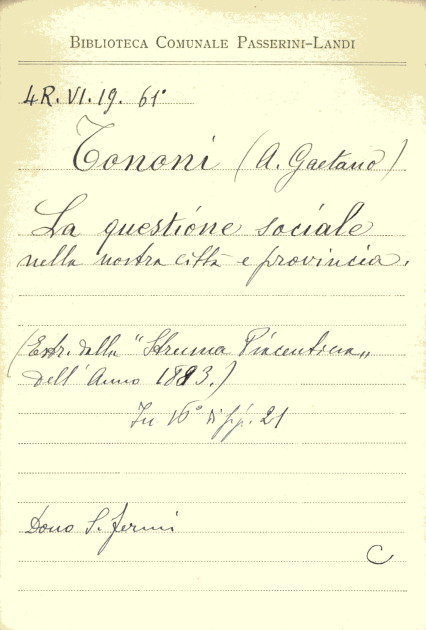 BIBLIOTECA COMUNALE PASSERINI-LANDI
4R. VI. 19. 61°
Tononi (A. Gaetano)
La questione sociale
nella nostra città e provincia.
(Estr. dalla "Strenna Piacentina„
dell'Anno 1883.)
In 16° di pp. 21
Dono S. Fermi
C